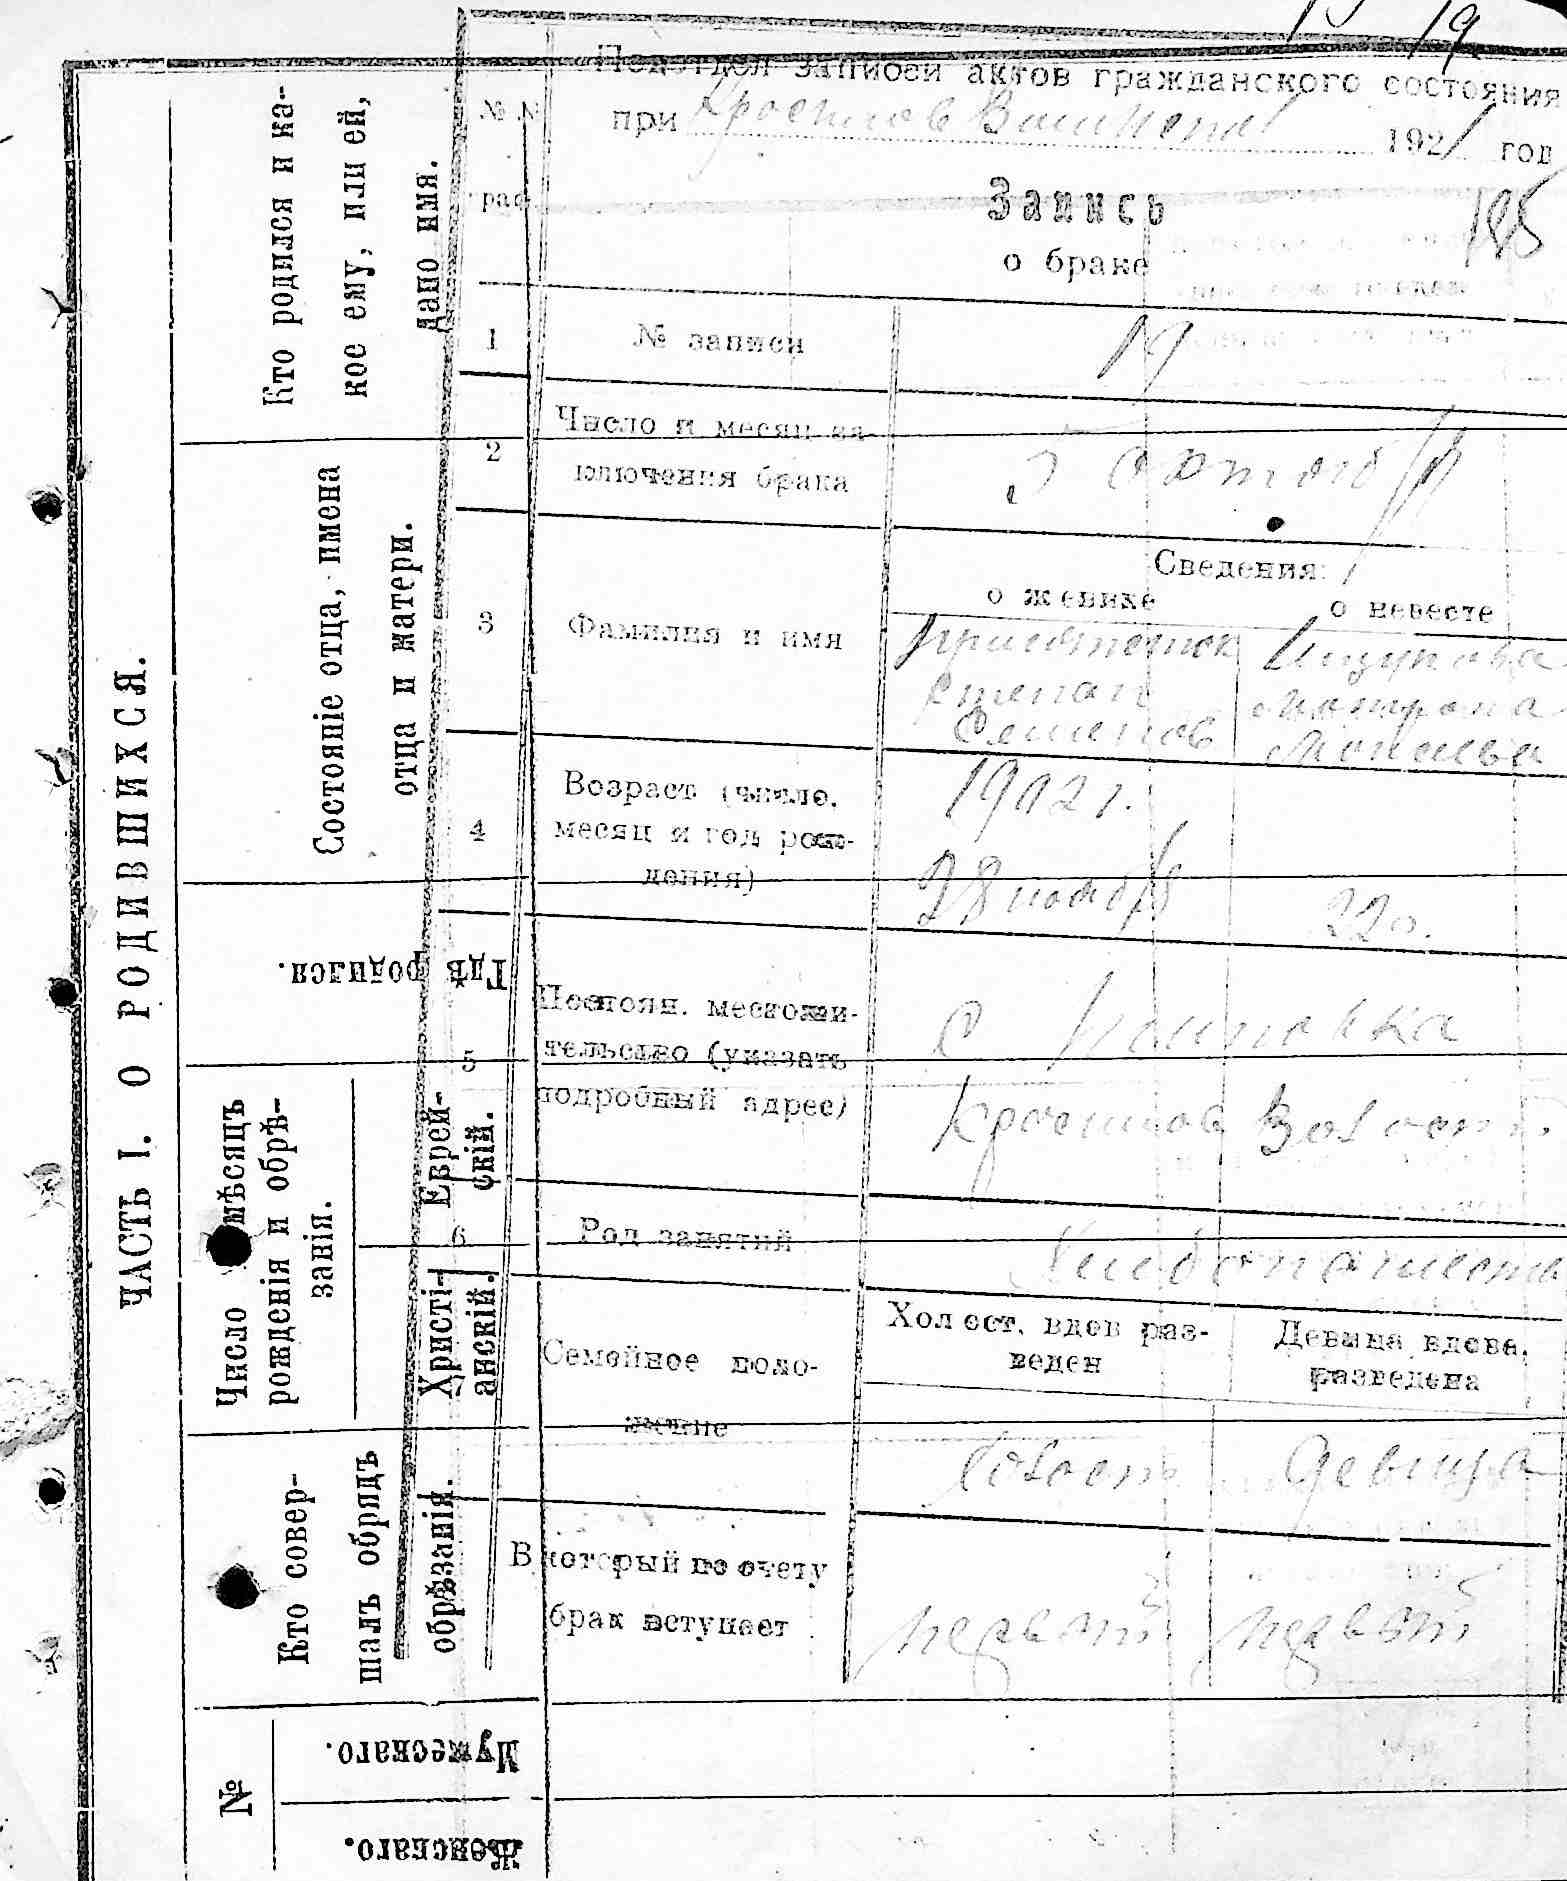 19
Подотдел записей актов гражданского состояния
при 1921 год
№№
раф
Запись
о браке
195
1
№ записи
19
2
Число и месяц за-
ключения брака
5 октября
Сведения:
о женихе
о невесте
3
Фамилия и имя
Степан
Семенов
4
Возраст (число,
месяц и год рож-
дения)
1902 г.
28 ноября
22 г.
5
Постоян. местожи-
тельство (указать
подробный адрес)
с
Волости
6
Род занятий
Хлебопашест
Семейное поло-
жение
Холост, вдов раз-
веден
Девица вдова,
разведена
Холост
девица
В который по счету
брак вступает
первый
первый
ЧАСТЬ I. О РОДИВШИХСЯ.
Кто родился и ка-
кое ему, или ей,
дано имя.
Состоянiе отца, имена
отца и матери.
Гдѣ родился.
Число мѣсяцъ
рожденiя и обрѣ-
занiя.
Еврей-
скiй.
Христi-
анскiй.
Кто совер-
шалъ обрядъ
обрѣзанiя.
№
Мужескаго.
Женскаго.